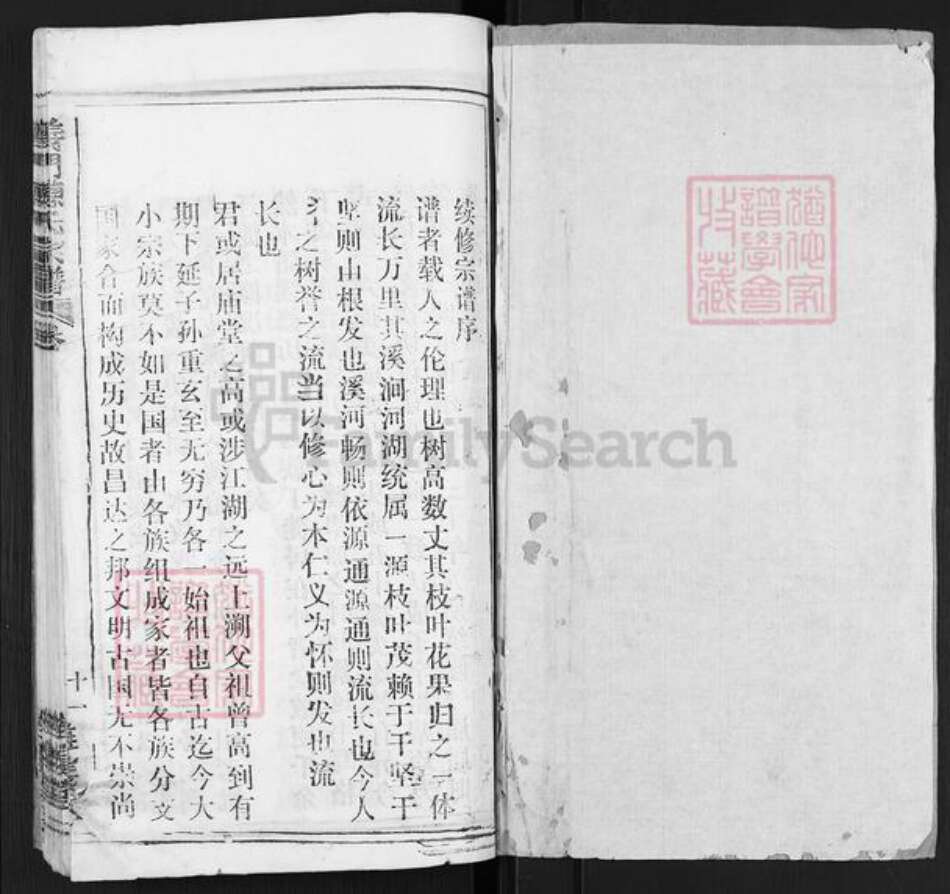 续修宗谱序
谱者载人之伦理也树高数丈其枝叶花果归之一体
流长万里其溪涧河湖统属一源枝叶茂赖于干坚干
坚则由根发也溪河畅则依源通源通则流长也今人
之树誉之流当以修心为本仁义为怀则发也流
长也
君或居庙堂之高或涉江湖之远上溯父祖曾高到有
期下延子孙重玄至无穷乃各一始祖也自古迄今大
小宗族莫不如是国者由各族组成家者皆各族分支
国家合而构成历史故昌达之邦文明古国无不崇尚
十一
譜學會
收藏
FamilySearch